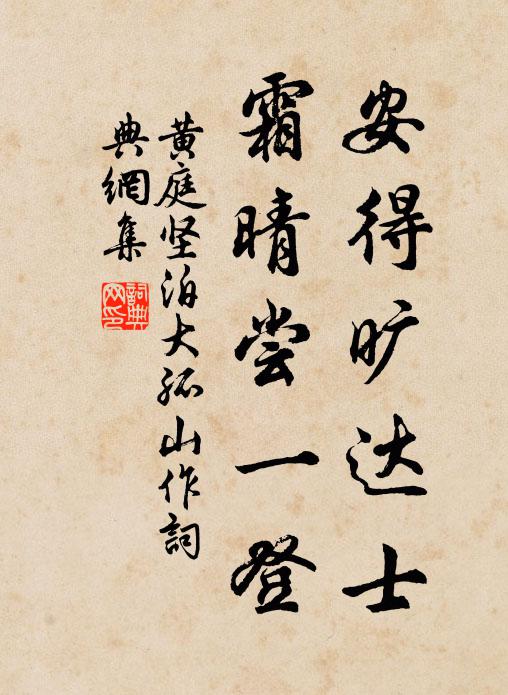 安得旷达士
霜晴尝一登
黄庭坚泊大孤山作詞
典網集
詞典网印